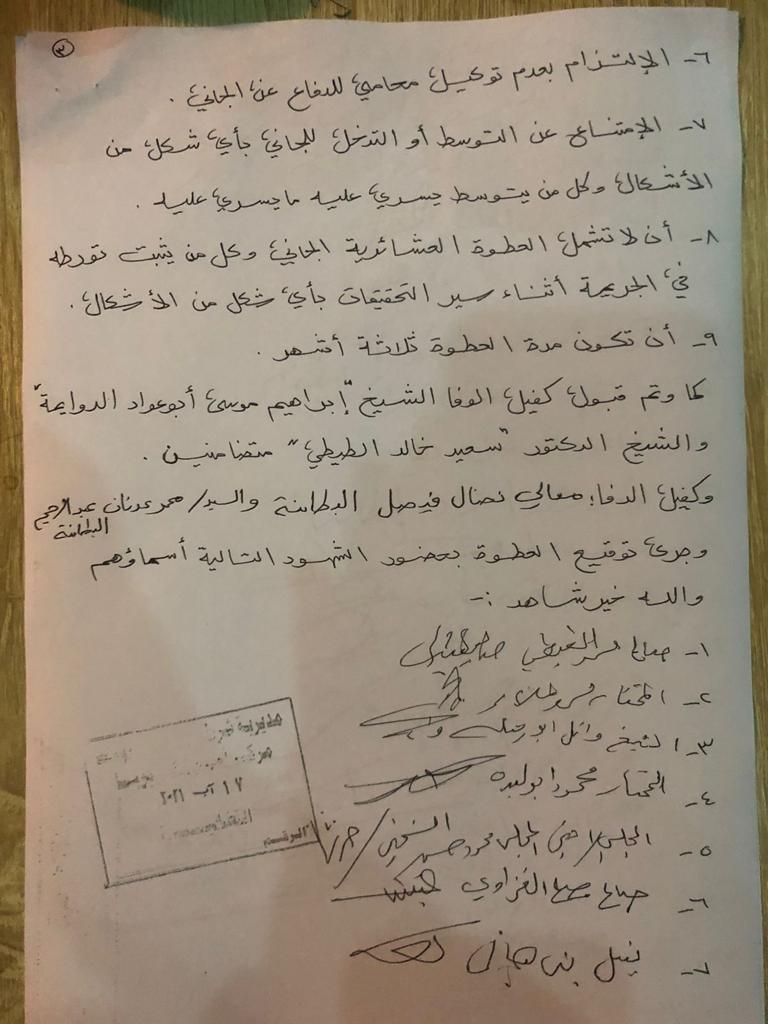 ٣
٦- الإلتزام بعدم توكيل محامي للدفاع عن الجاني .
٧- الإمتناع عن التوسط أو التدخل للجاني بأي شكل من
الأشكال وكل من يتوسط يسري عليه ما يسري عليه .
٨- أن لا تشمل العطوة العشائرية الجاني وكل من يثبت تورطه
في الجريمة أثناء سير التحقيقات بأي شكل من الأشكال .
٩- أن تكون مدة العطوة ثلاثة أشهر .
كما وتم قبول كفيل الوفا الشيخ "إبراهيم موسى أبو عواد الدوايمة"
والشيخ الدكتور "سعيد خالد الطيطي" متضامنين .
وكفيل الدفا: معالي نضال فيصل البطاينة والسيد/ محمد عدنان عبدالرحيم
البطاينة
وجرى توقيع العطوة بحضور الشهود التالية أسماؤهم
والله خير شاهد :-
١-
٢- المختار
٣- الشيخ وائل ابو
٤- المختار محمود ابو لبده
٥- محمود حسن
٦- الغزاوي
٧- بني هاني
مديرية شرطة
١٧ آب ٢٠٢١
الرقم